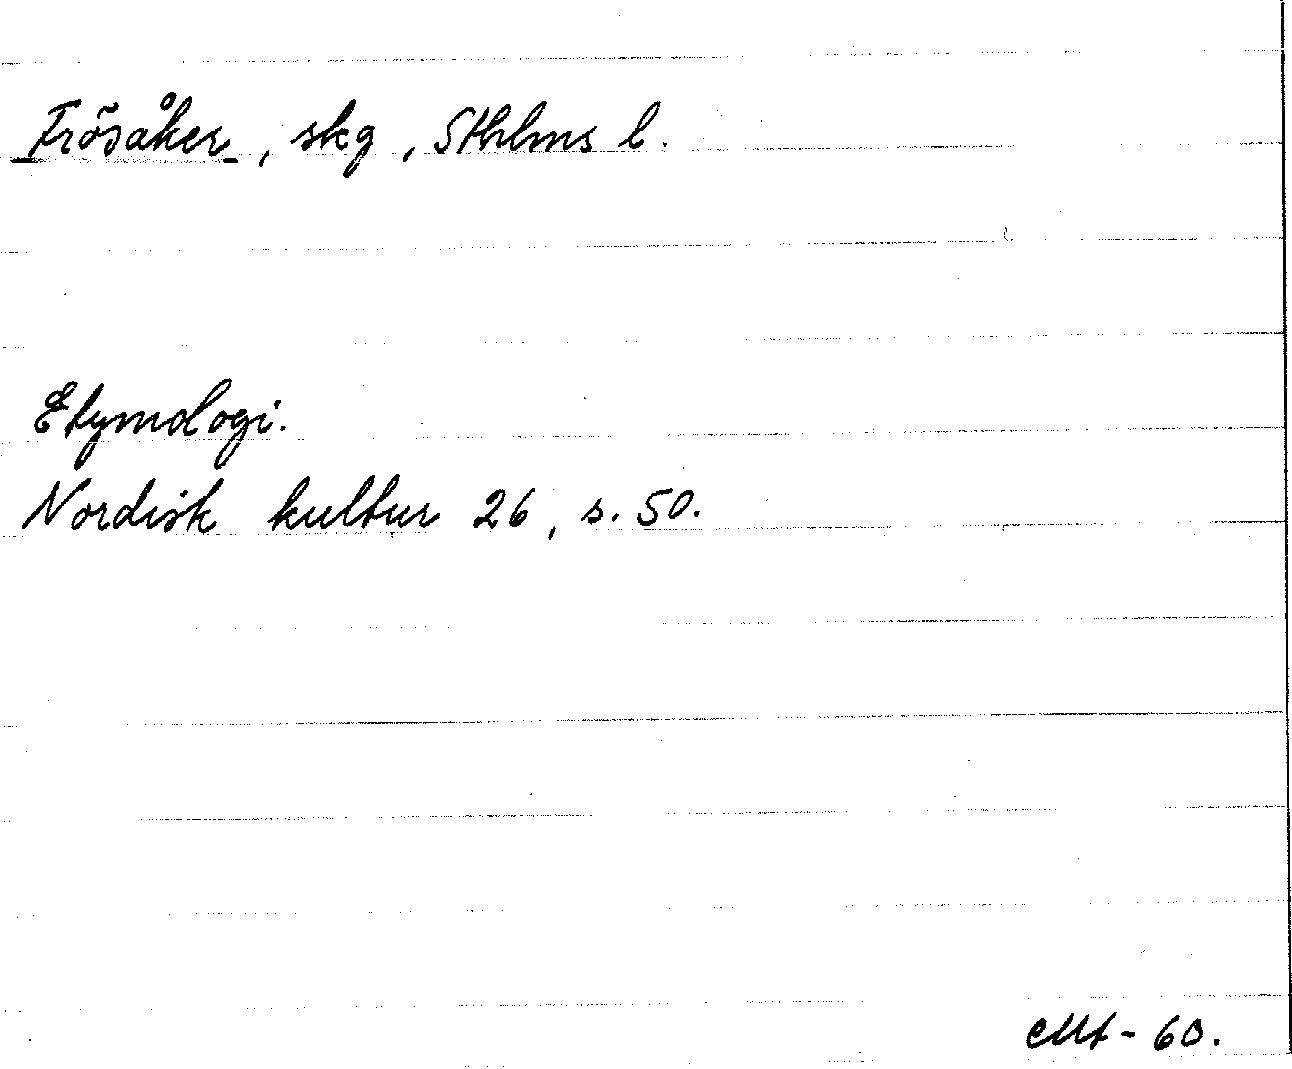 Frösåker, skg, Sthlms l.
Etymologi.
Nordisk kultur 26, s. 50.
-60.